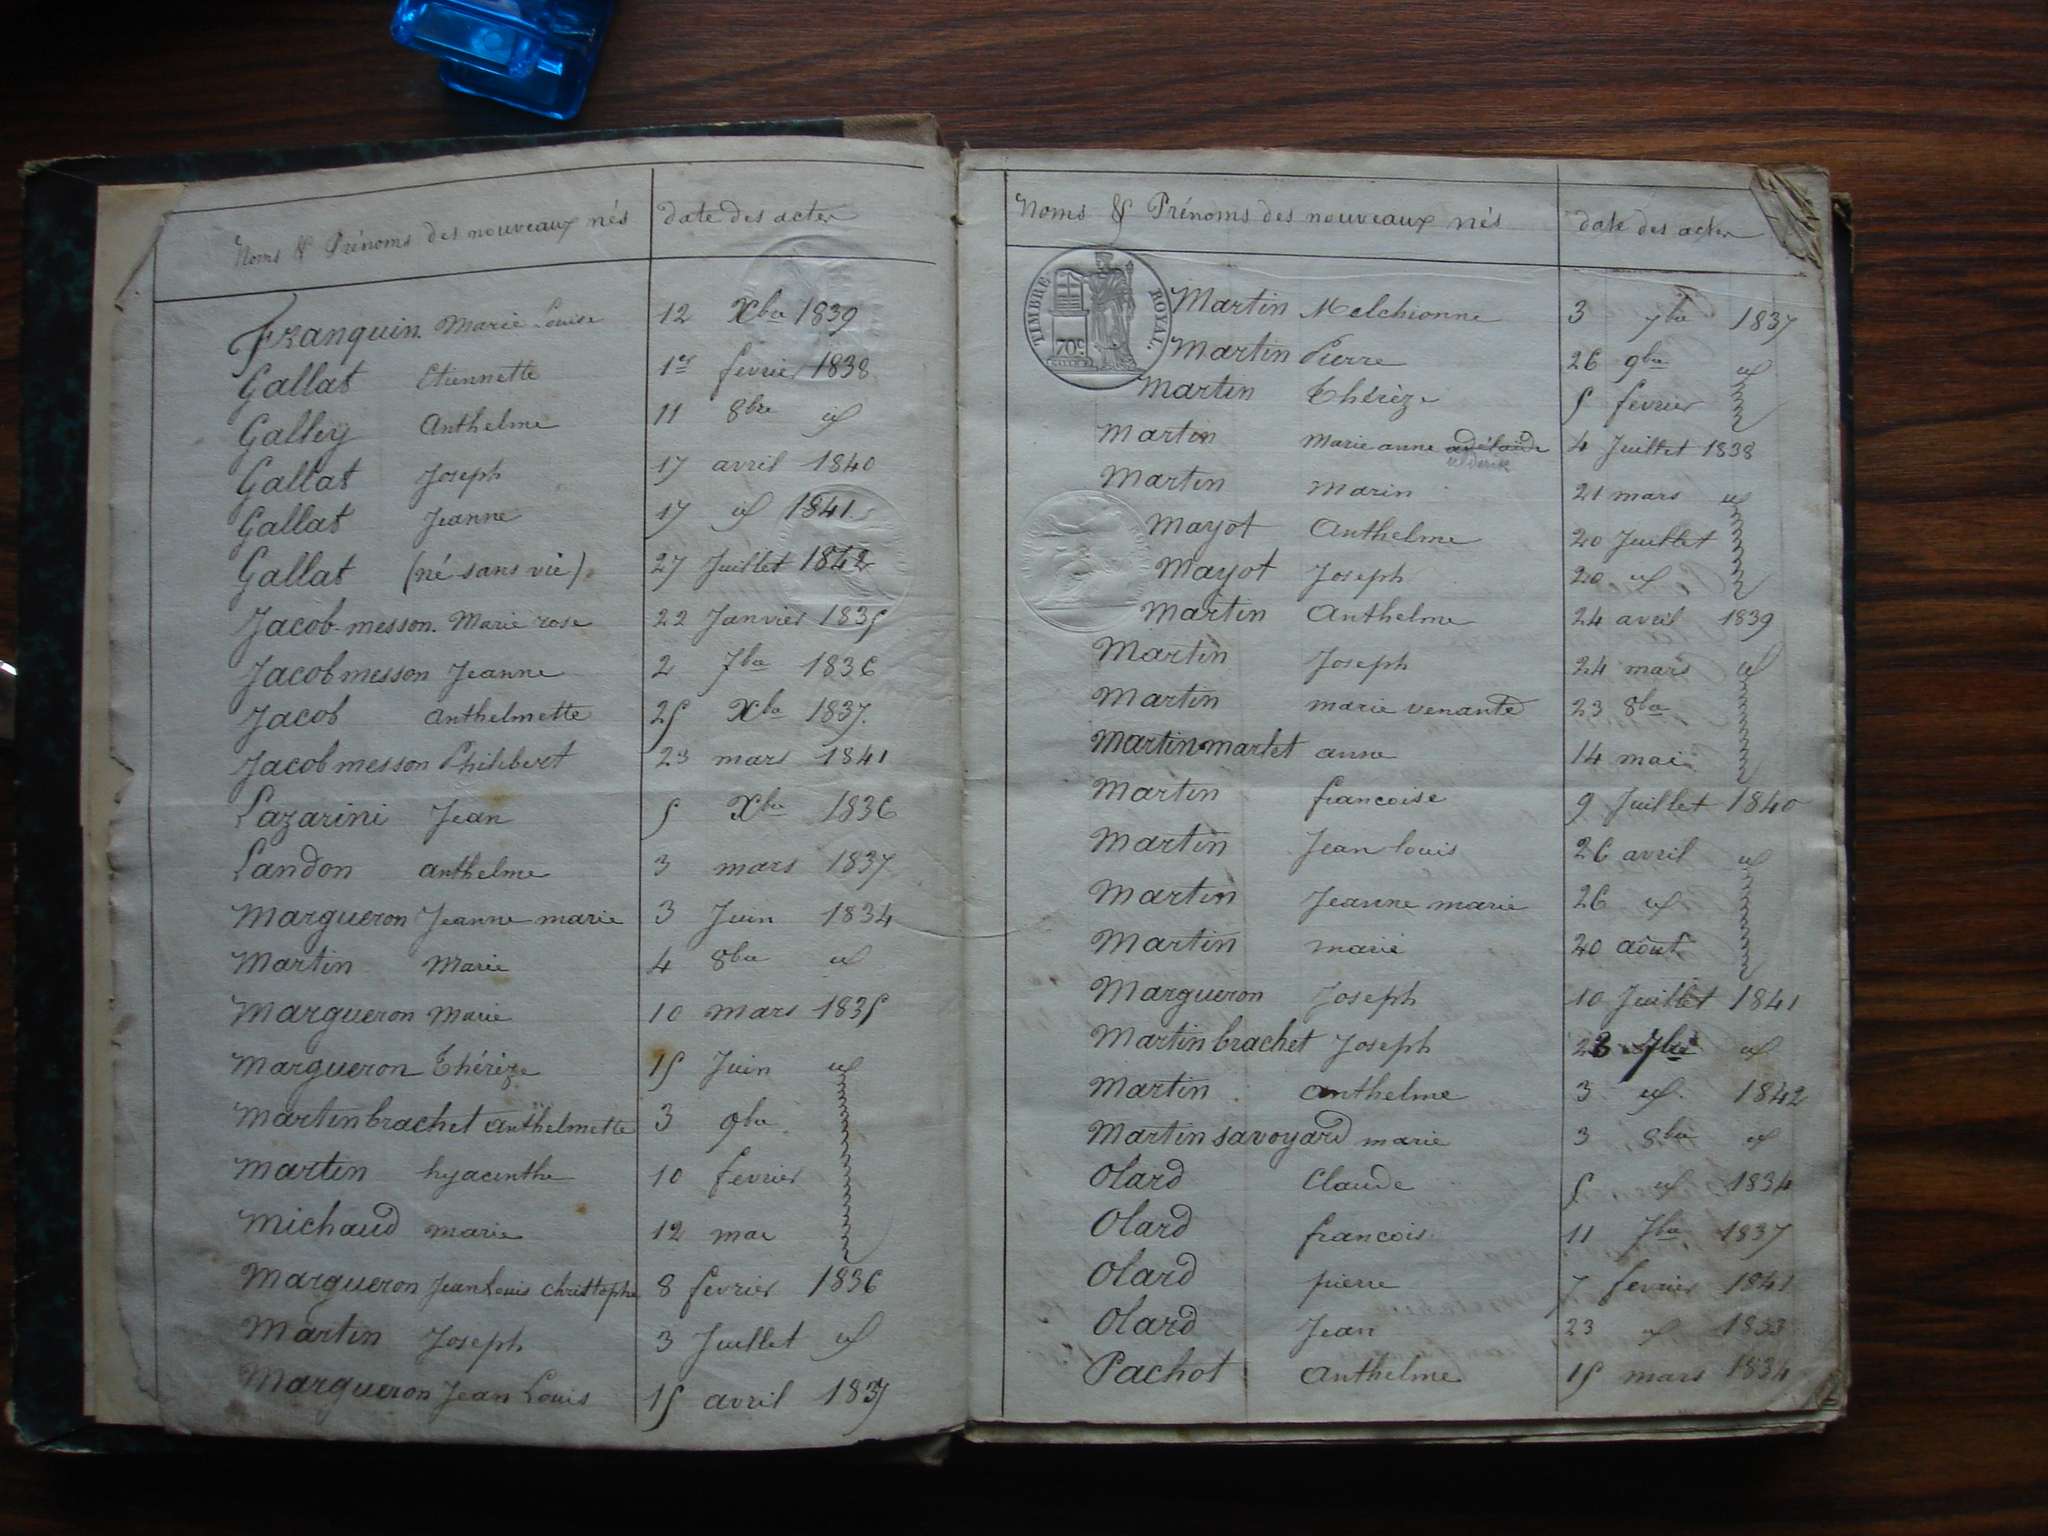 Noms & Prénoms des nouveaux nés date des actes
Franquin Marie Louise 12 Xbre 1839
Gallat Etiennette 1er fevrier 1838
Galley Anthelme 11 8bre id
Gallat Joseph 17 avril 1840
Gallat Jeanne 17 id 1841
Gallat (né sans vie) 27 Juillet 1842
Jacob-messon. Marie rose 22 Janvier 1835
Jacob messon Jeanne 2 7bre 1836
Jacob anthelmette 25 Xbre 1837.
Jacob messon Philibert 23 mars 1841
Lazarini Jean 5 Xbre 1836
Landon anthelme 3 mars 1837
Margueron Jeanne marie 3 Juin 1834
Martin Marie 4 8bre id
Margueron Marie 10 mars 1835
Margueron Thérèze 15 Juin id
Martin brachet anthelmette 3 9bre
Martin hyacinthe 10 fevrier
Michaud marie 12 mai
Margueron Jean Louis Christophe 8 fevrier 1836
Martin Joseph 3 Juillet id
Margueron Jean Louis 15 avril 1837
Noms & Prénoms des nouveaux nés date des actes
TIMBRE ROYAL.
70c
Martin Melchionne 3 7bre 1837
Martin Pierre 26 9bre id
Martin Thérèze 5 fevrier
Martin Marie anne adélaide 4 Juillet 1838
Martin Marin 21 mars id
Mayot Anthelme 20 Juillet
Mayot Joseph 20 id
Martin Anthelme 24 avril 1839
Martin Joseph 24 mars id
Martin marie venante 23 8bre
Martin marlet anne 14 mai
Martin francoise 9 Juillet 1840
Martin Jean louis 26 avril id
Martin Jeanne marie 26 id
Martin marie 20 aout
Margueron Joseph 10 Juillet 1841
Martin brachet Joseph 23 7bre id
Martin anthelme 3 id. 1842
Martin savoyard marie 3 8bre id
Olard Claude 5 id 1834
Olard francois 11 7bre 1837
Olard pierre 7 fevrier 1841
Olard Jean 23 id 1833
Pachot Anthelme 15 mars 1834